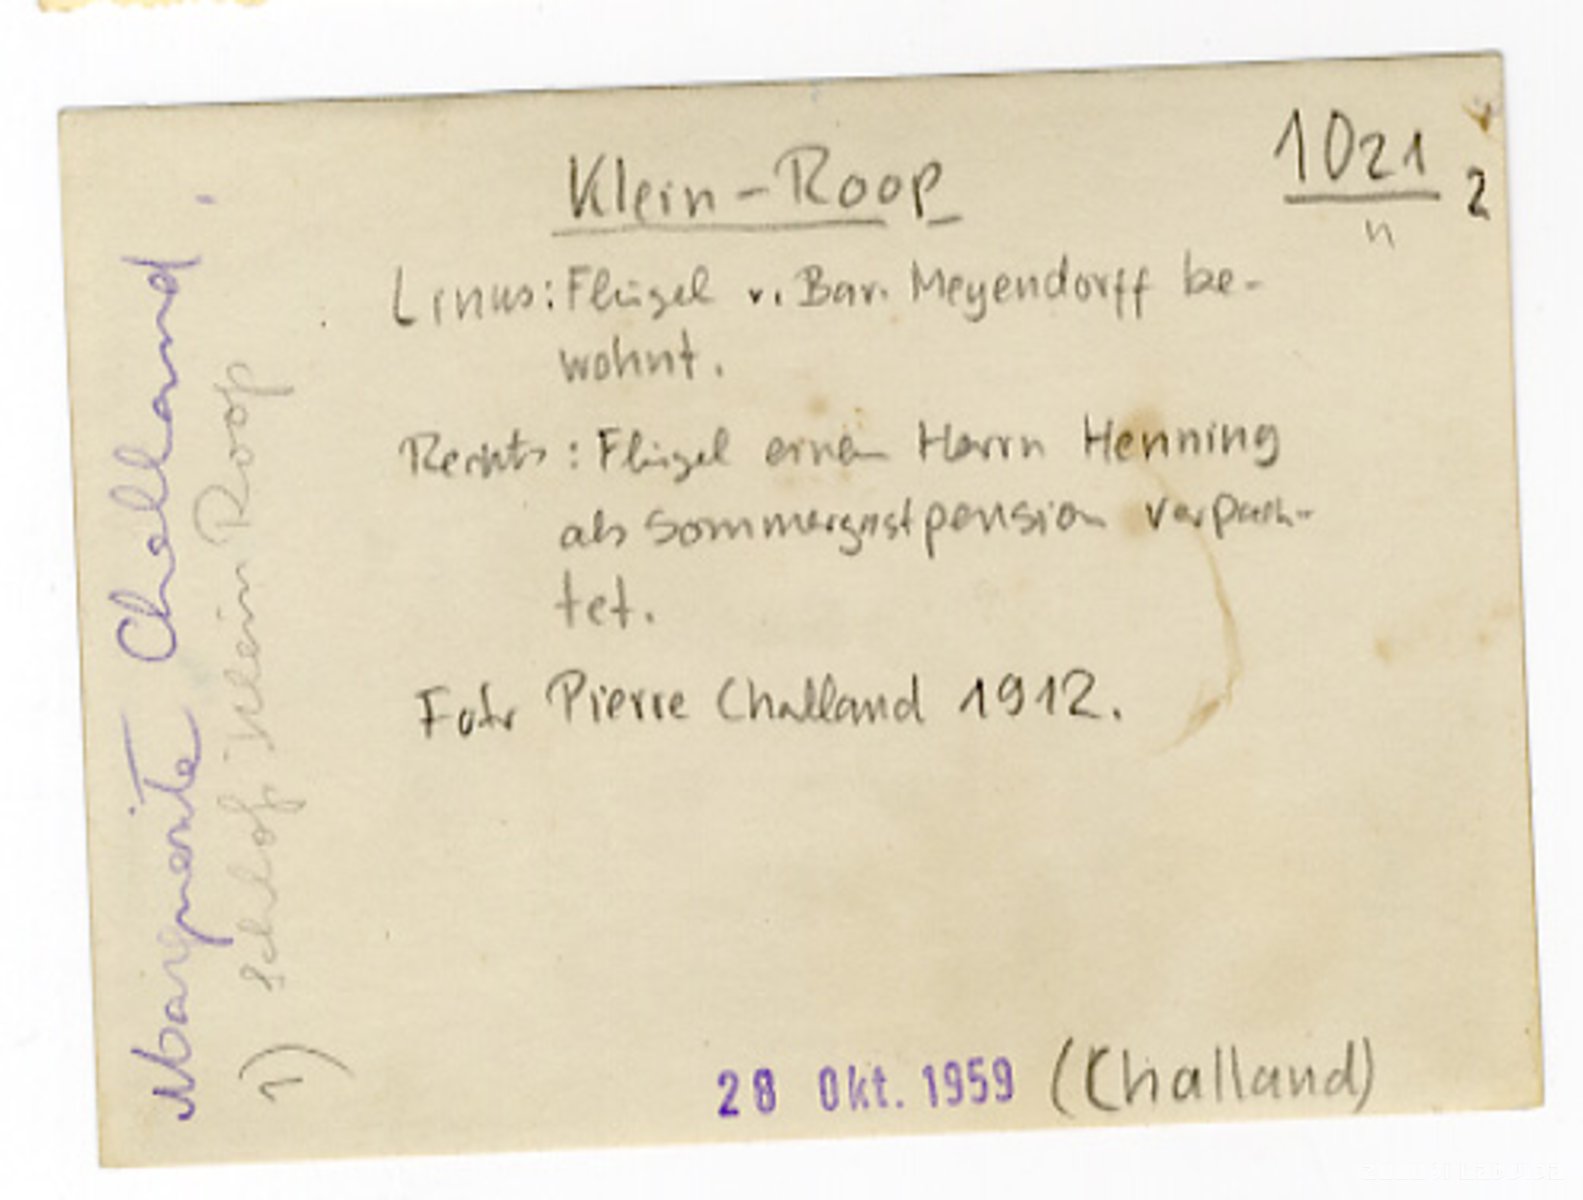 Klein-Roop
1021
n
2
Links: Flügel v. Bar. Meyendorff be-
wohnt.
Rechts: Flügel einem Herrn Henning
als Sommergastpension verpach-
tet.
Foto Pierre Challand 1912.
28 Okt. 1959 (Challand)
Marguerite Challand.
1) Schloß Klein Roop